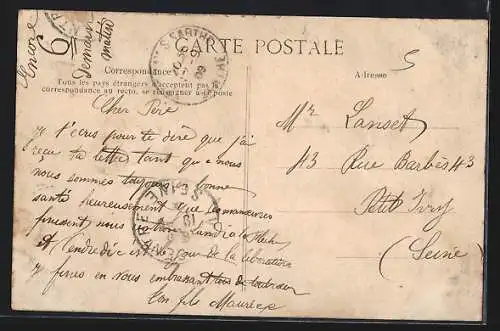 Encore
6
demain
matin
SARTHE
09
CARTE POSTALE
Correspondance
Tous les pays étrangers n'acceptent pas la
correspondance au recto, se renseigner à la poste
Adresse
5
Cher Père
Je t'écris pour te dire que j'ai
reçu ta lettre tant que nous
nous sommes toujours en bonne
santé heureusement que les manœuvres
finissent nous lundi a la Flèche
Vendredi c'est le jour de la libération
Je finis en vous embrassant
ton fils Maurice
Mr Lanset
43 Rue Barbès 43
Petit Ivry
(Seine